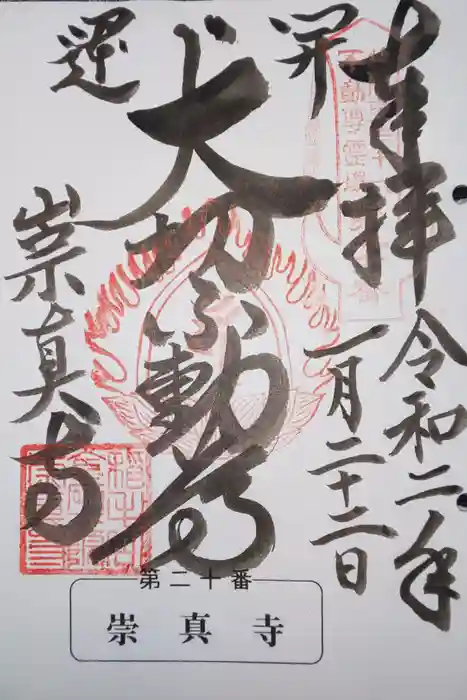 奉拝
令和二年
一月二十二日
開運
犬切不動尊
崇真寺
第二十番
崇真寺